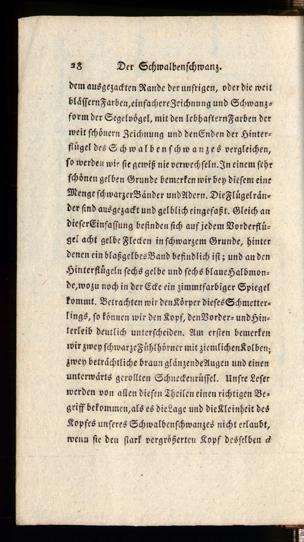 28 Der Schwalbenschwanz.
dem ausgezackten Rande der unsrigen, oder die weit
blässern Farben, einfachere Zeichnung und Schwanz-
form der Segelvögel, mit den lebhaftern Farben der
weit schönern Zeichnung und den Enden der Hinter-
flügel des Schwalbenschwanzes vergleichen,
so werden wir sie gewiß nie verwechseln. In einem sehr
schönen gelben Grunde bemerken wir bey diesem eine
Menge schwarzer Bänder und Adern. Die Flügelrän-
der sind ausgezackt und gelblich eingefaßt. Gleich an
dieser Einfassung befinden sich auf jedem Vorderflü-
gel acht gelbe Flecken in schwarzem Grunde, hinter
denen ein blaßgelbes Band befindlich ist; und an den
Hinterflügeln sechs gelbe und sechs blaue Halbmon-
de, wozu noch in der Ecke ein zimmtfarbiger Spiegel
kommt. Betrachten wir den Körper dieses Schmetter-
lings, so können wir den Kopf, den Vorder- und Hin-
terleib deutlich unterscheiden. Am ersten bemerken
wir zwey schwarze Fühlhörner mit ziemlichen Kolben;
zwey beträchtliche braun glänzende Augen und einen
unterwärts gerollten Schneckenrüssel. Unsre Leser
werden von allen diesen Theilen einen richtigen Be-
griff bekommen, als es die Lage und die Kleinheit des
Kopfes unseres Schwalbenschwanzes nicht erlaubt,
wenn sie den stark vergrößerten Kopf desselben a